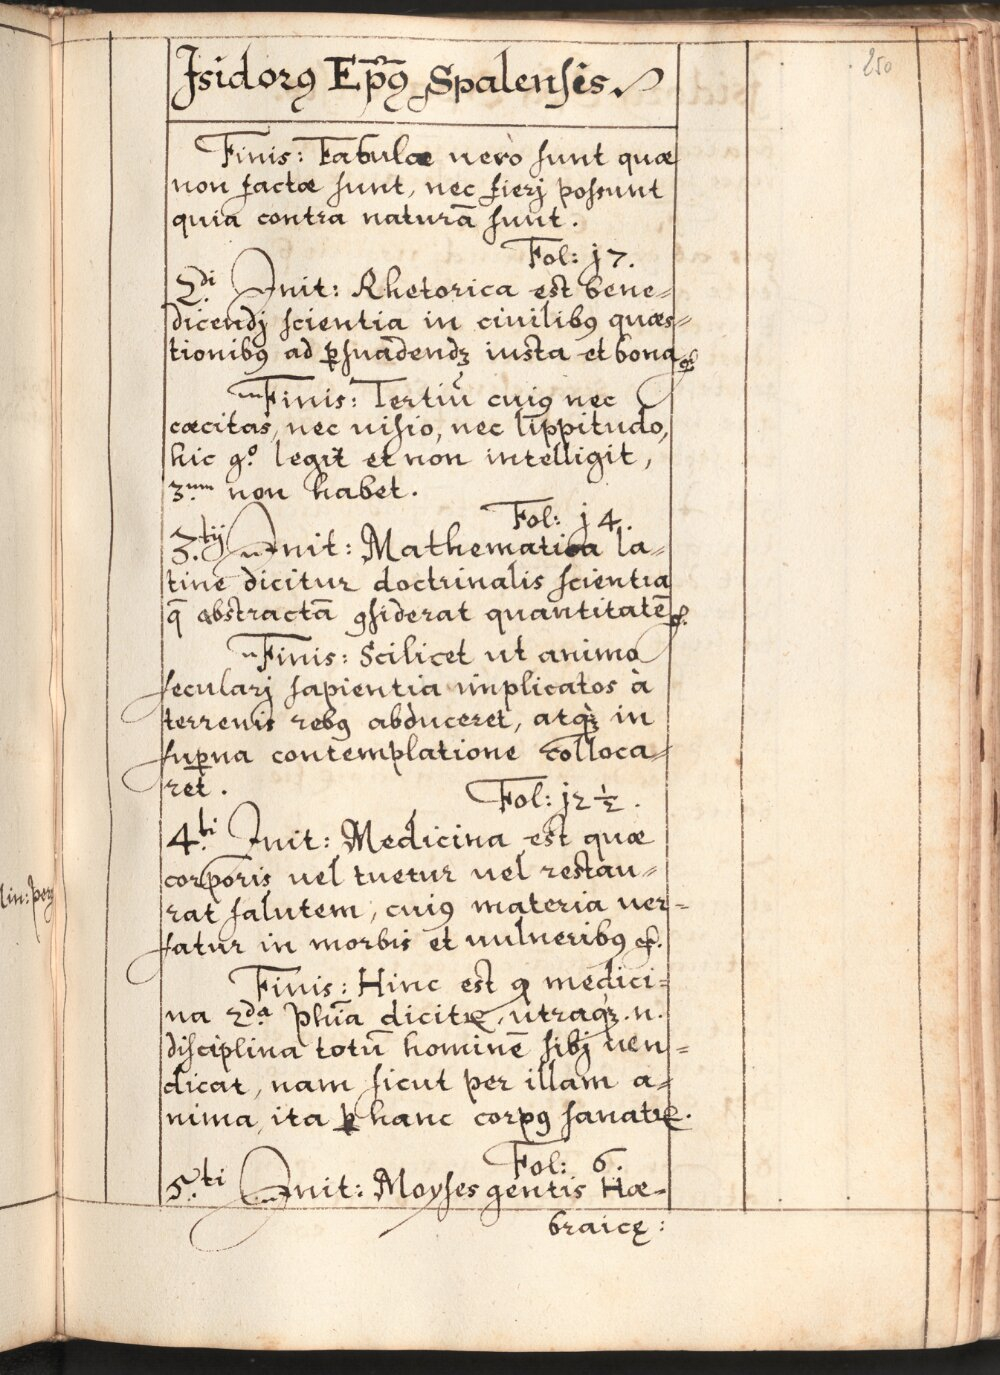 250
Isidorꝰ Ep̄ꝰ Spalensis.
Finis: Fabulæ uerò sunt quæ
non factæ sunt, nec fierj possunt
quia contra naturā sunt.
Fol: j7.
2.di Init: Rhetorica est bene=
dicendj scientia in ciuilibꝰ quæs=
tionibꝰ ad ꝑsuadendꝫ iusta et bona
Finis: Tertiū cuiꝰ nec
cæcitas, nec uisio, nec lippitudo,
hic ꝯ.o legit et non intelligit,
3.um non habet.
Fol: j4.
3.tij Init: Mathematica la=
tine dicitur doctrinalis scientia
q̄ abstractā ꝯsiderat quantitatē
Finis: Scilicet ut animo
secularj sapientia implicatos à
terrenis rebꝰ abduceret, atqꝫ in
suꝑna contemplatione colloca=
ret.
Fol: j2 ½.
4.ti Init: Medicina est quæ
corporis uel tuetur uel restau=
rat salutem, cuiꝰ materia uer=
satur in morbis et uulneribꝰ
Finis: Hinc est ꝙ medici=
na 2.da Phīa dicitꝛ, utraqꝫ .n.
disciplina totū hominē sibj uen=
dicat, nam sicut per illam a=
nima, ita ꝑ hanc corpꝰ sanatꝛ.
Fol: 6.
5.ti Init: Moyses gentis Hæ=
braicę: